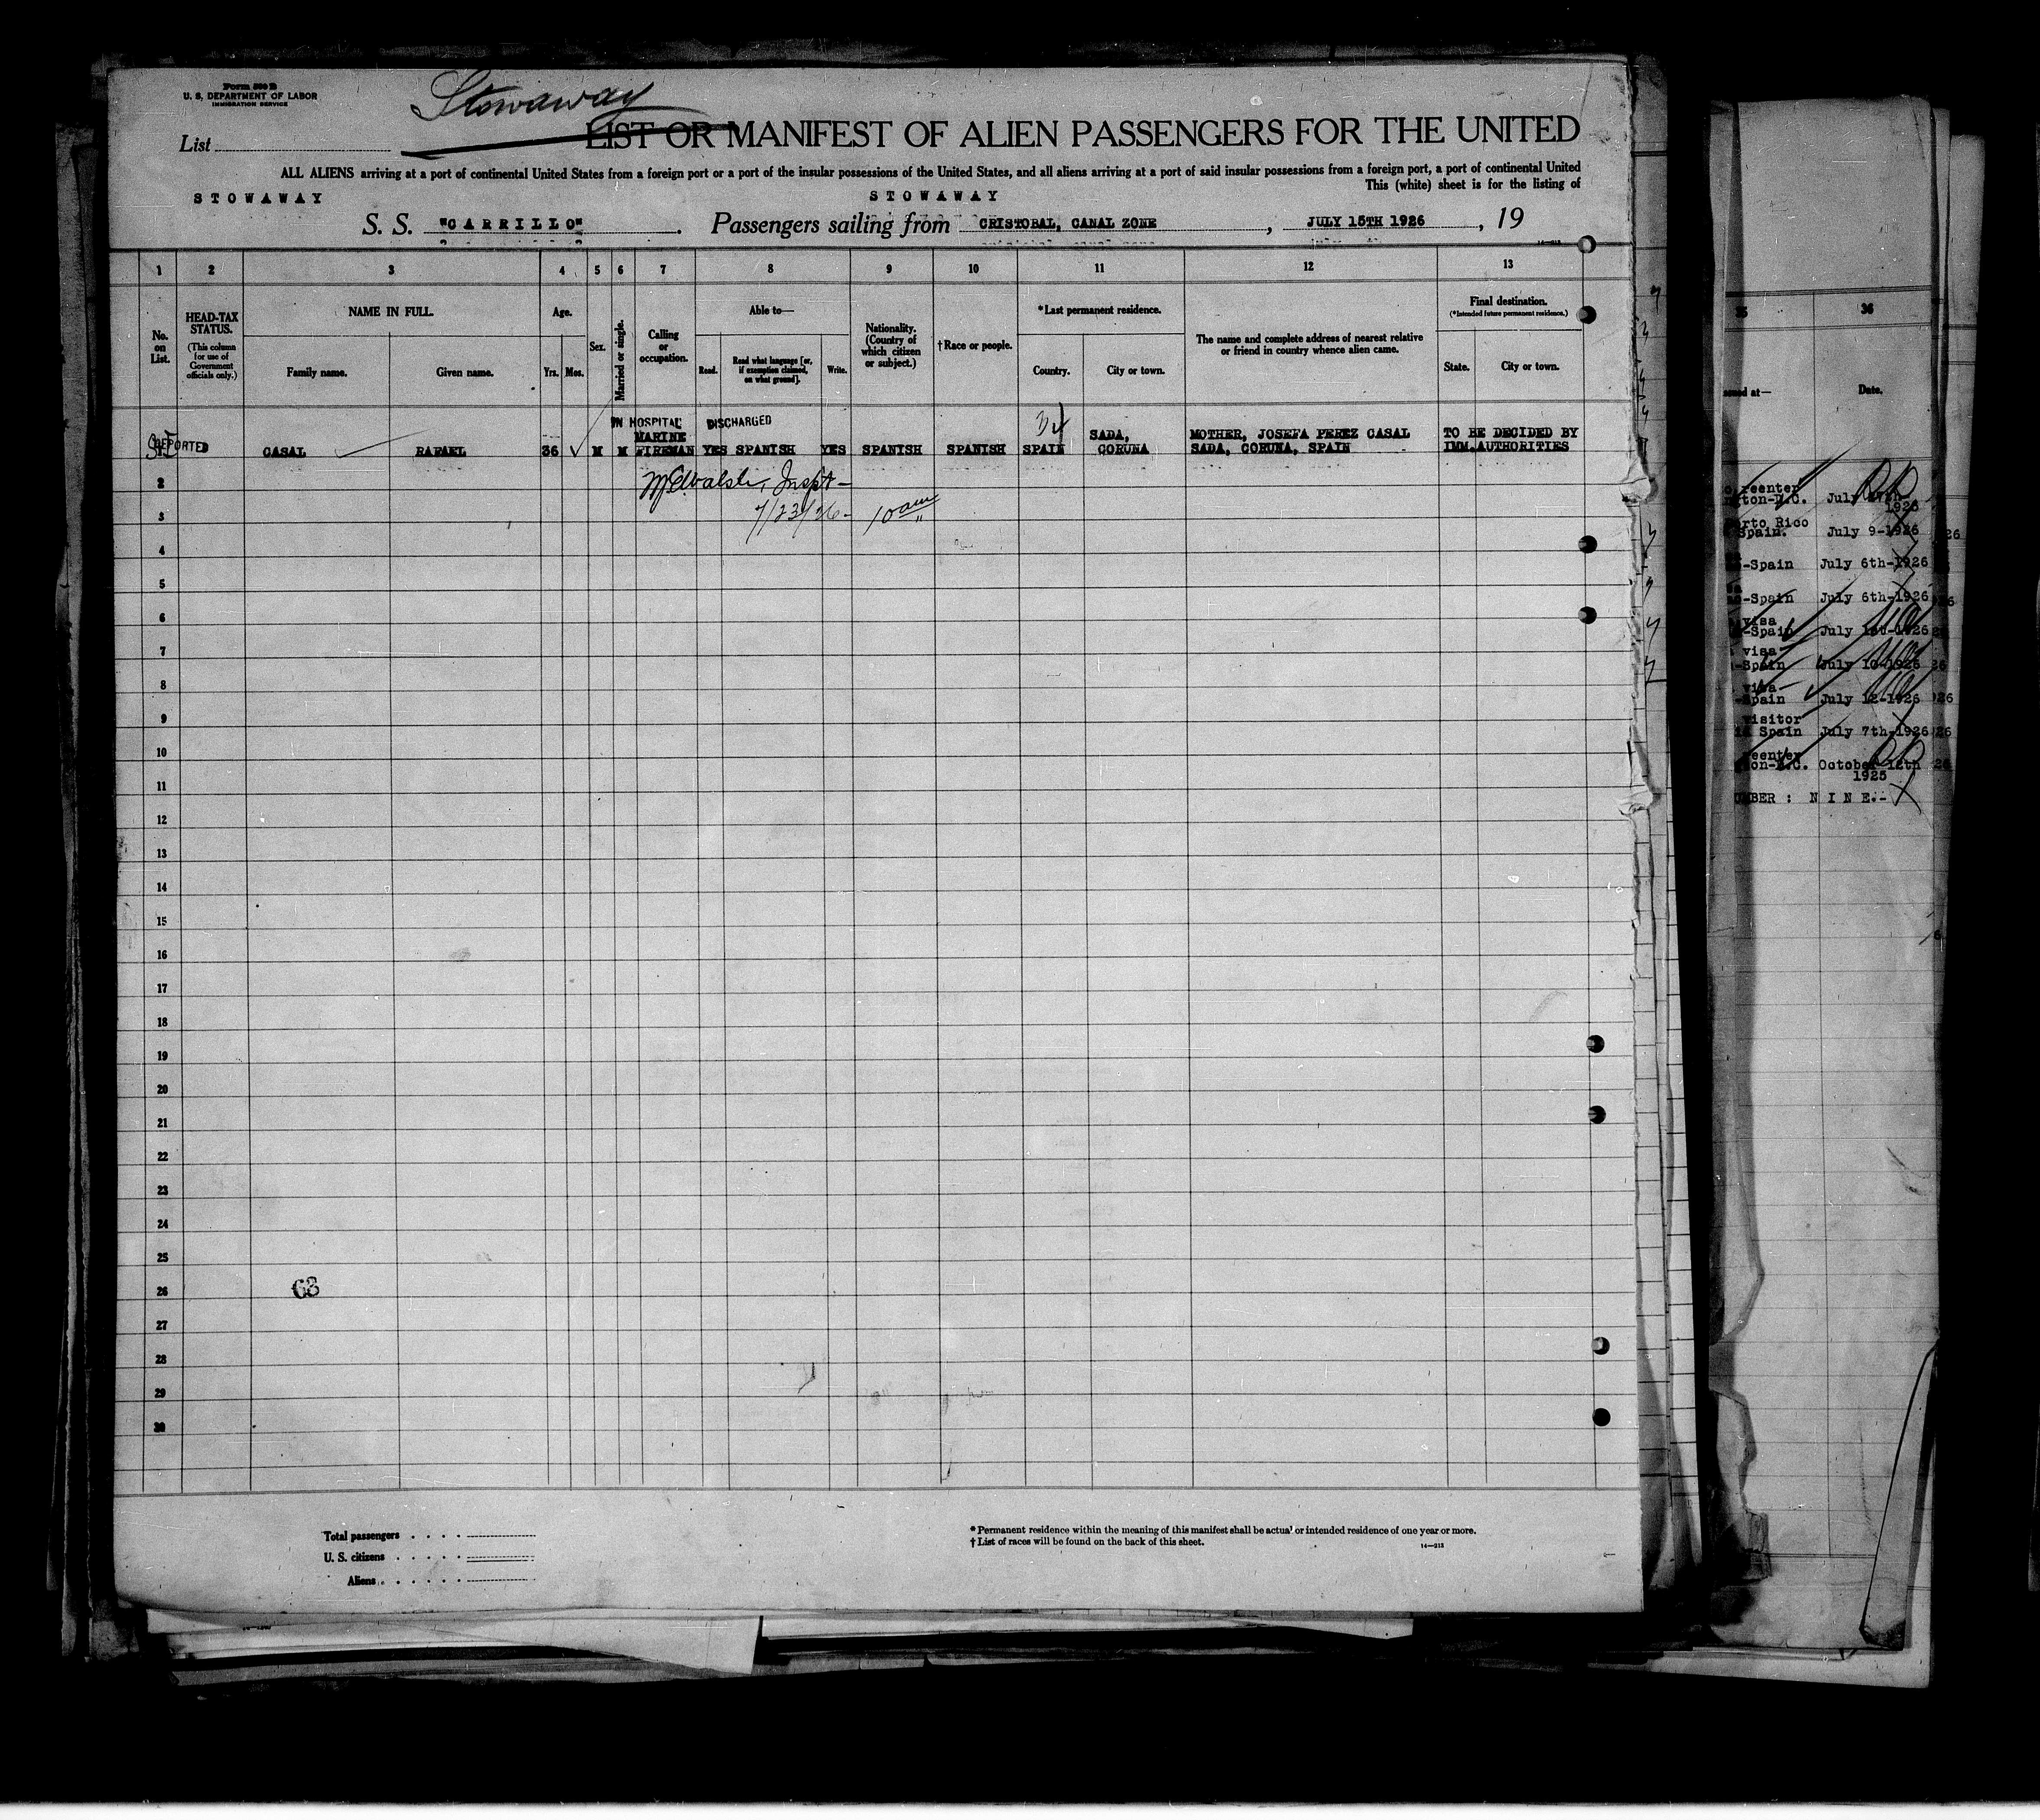 Form 500 B
U. S. DEPARTMENT OF LABOR
IMMIGRATION SERVICE
Stowaway
List
LIST OR MANIFEST OF ALIEN PASSENGERS FOR THE UNITED
ALL ALIENS arriving at a port of continental United States from a foreign port or a port of the insular possessions of the United States, and all aliens arriving at a port of said insular possessions from a foreign port, a port of continental United
This (white) sheet is for the listing of
STOWAWAY STOWAWAY
S. S. "CARRILLO". Passengers sailing from CRISTOBAL, CANAL ZONE, JULY 15TH 1926, 19
14—213
1 2 3 4 5 6 7 8 9 10 11 12 13
No. on List.
HEAD-TAX STATUS.
(This column for use of Government officials only.)
NAME IN FULL.
Family name. Given name.
Age.
Yrs. Mos.
Sex.
Married or single.
Calling or occupation.
Able to—
Read. Read what language [or, if exemption claimed, on what ground]. Write.
Nationality. (Country of which citizen or subject.)
†Race or people.
*Last permanent residence.
Country. City or town.
The name and complete address of nearest relative or friend in country whence alien came.
Final destination.
(*Intended future permanent residence.)
State. City or town.
IN HOSPITAL DISCHARGED
DEPORTED CASAL RAFAEL 36 M M MARINE FIREMAN YES SPANISH YES SPANISH SPANISH SPAIN SADA, CORUNA MOTHER, JOSEFA PEREZ CASAL SADA, CORUNA, SPAIN TO BE DECIDED BY IMM.AUTHORITIES
2
Inspt-
3
7/23/26- 10 am
4
5
6
7
8
9
10
11
12
13
14
15
16
17
18
19
20
21
22
23
24
25
26
63
27
28
29
30
Total passengers
U. S. citizens
Aliens
*Permanent residence within the meaning of this manifest shall be actual or intended residence of one year or more.
†List of races will be found on the back of this sheet.
14—213
36
Date.
reenter
July
1926
Rico
Spain. July 9-1926
-Spain July 6th-1926
-Spain July 6th-1926
visa
-Spain July
visa
-Spain July 10-1926
visa
-Spain July 12-1926
visitor
Spain July 7th-1926
October
1925
NINE.-